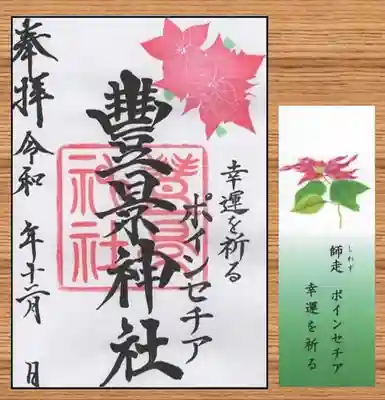 奉拝
令和 年十二月 日
豊景神社
幸運を祈る
ポインセチア
師走 ポインセチア
しわす
幸運を祈る